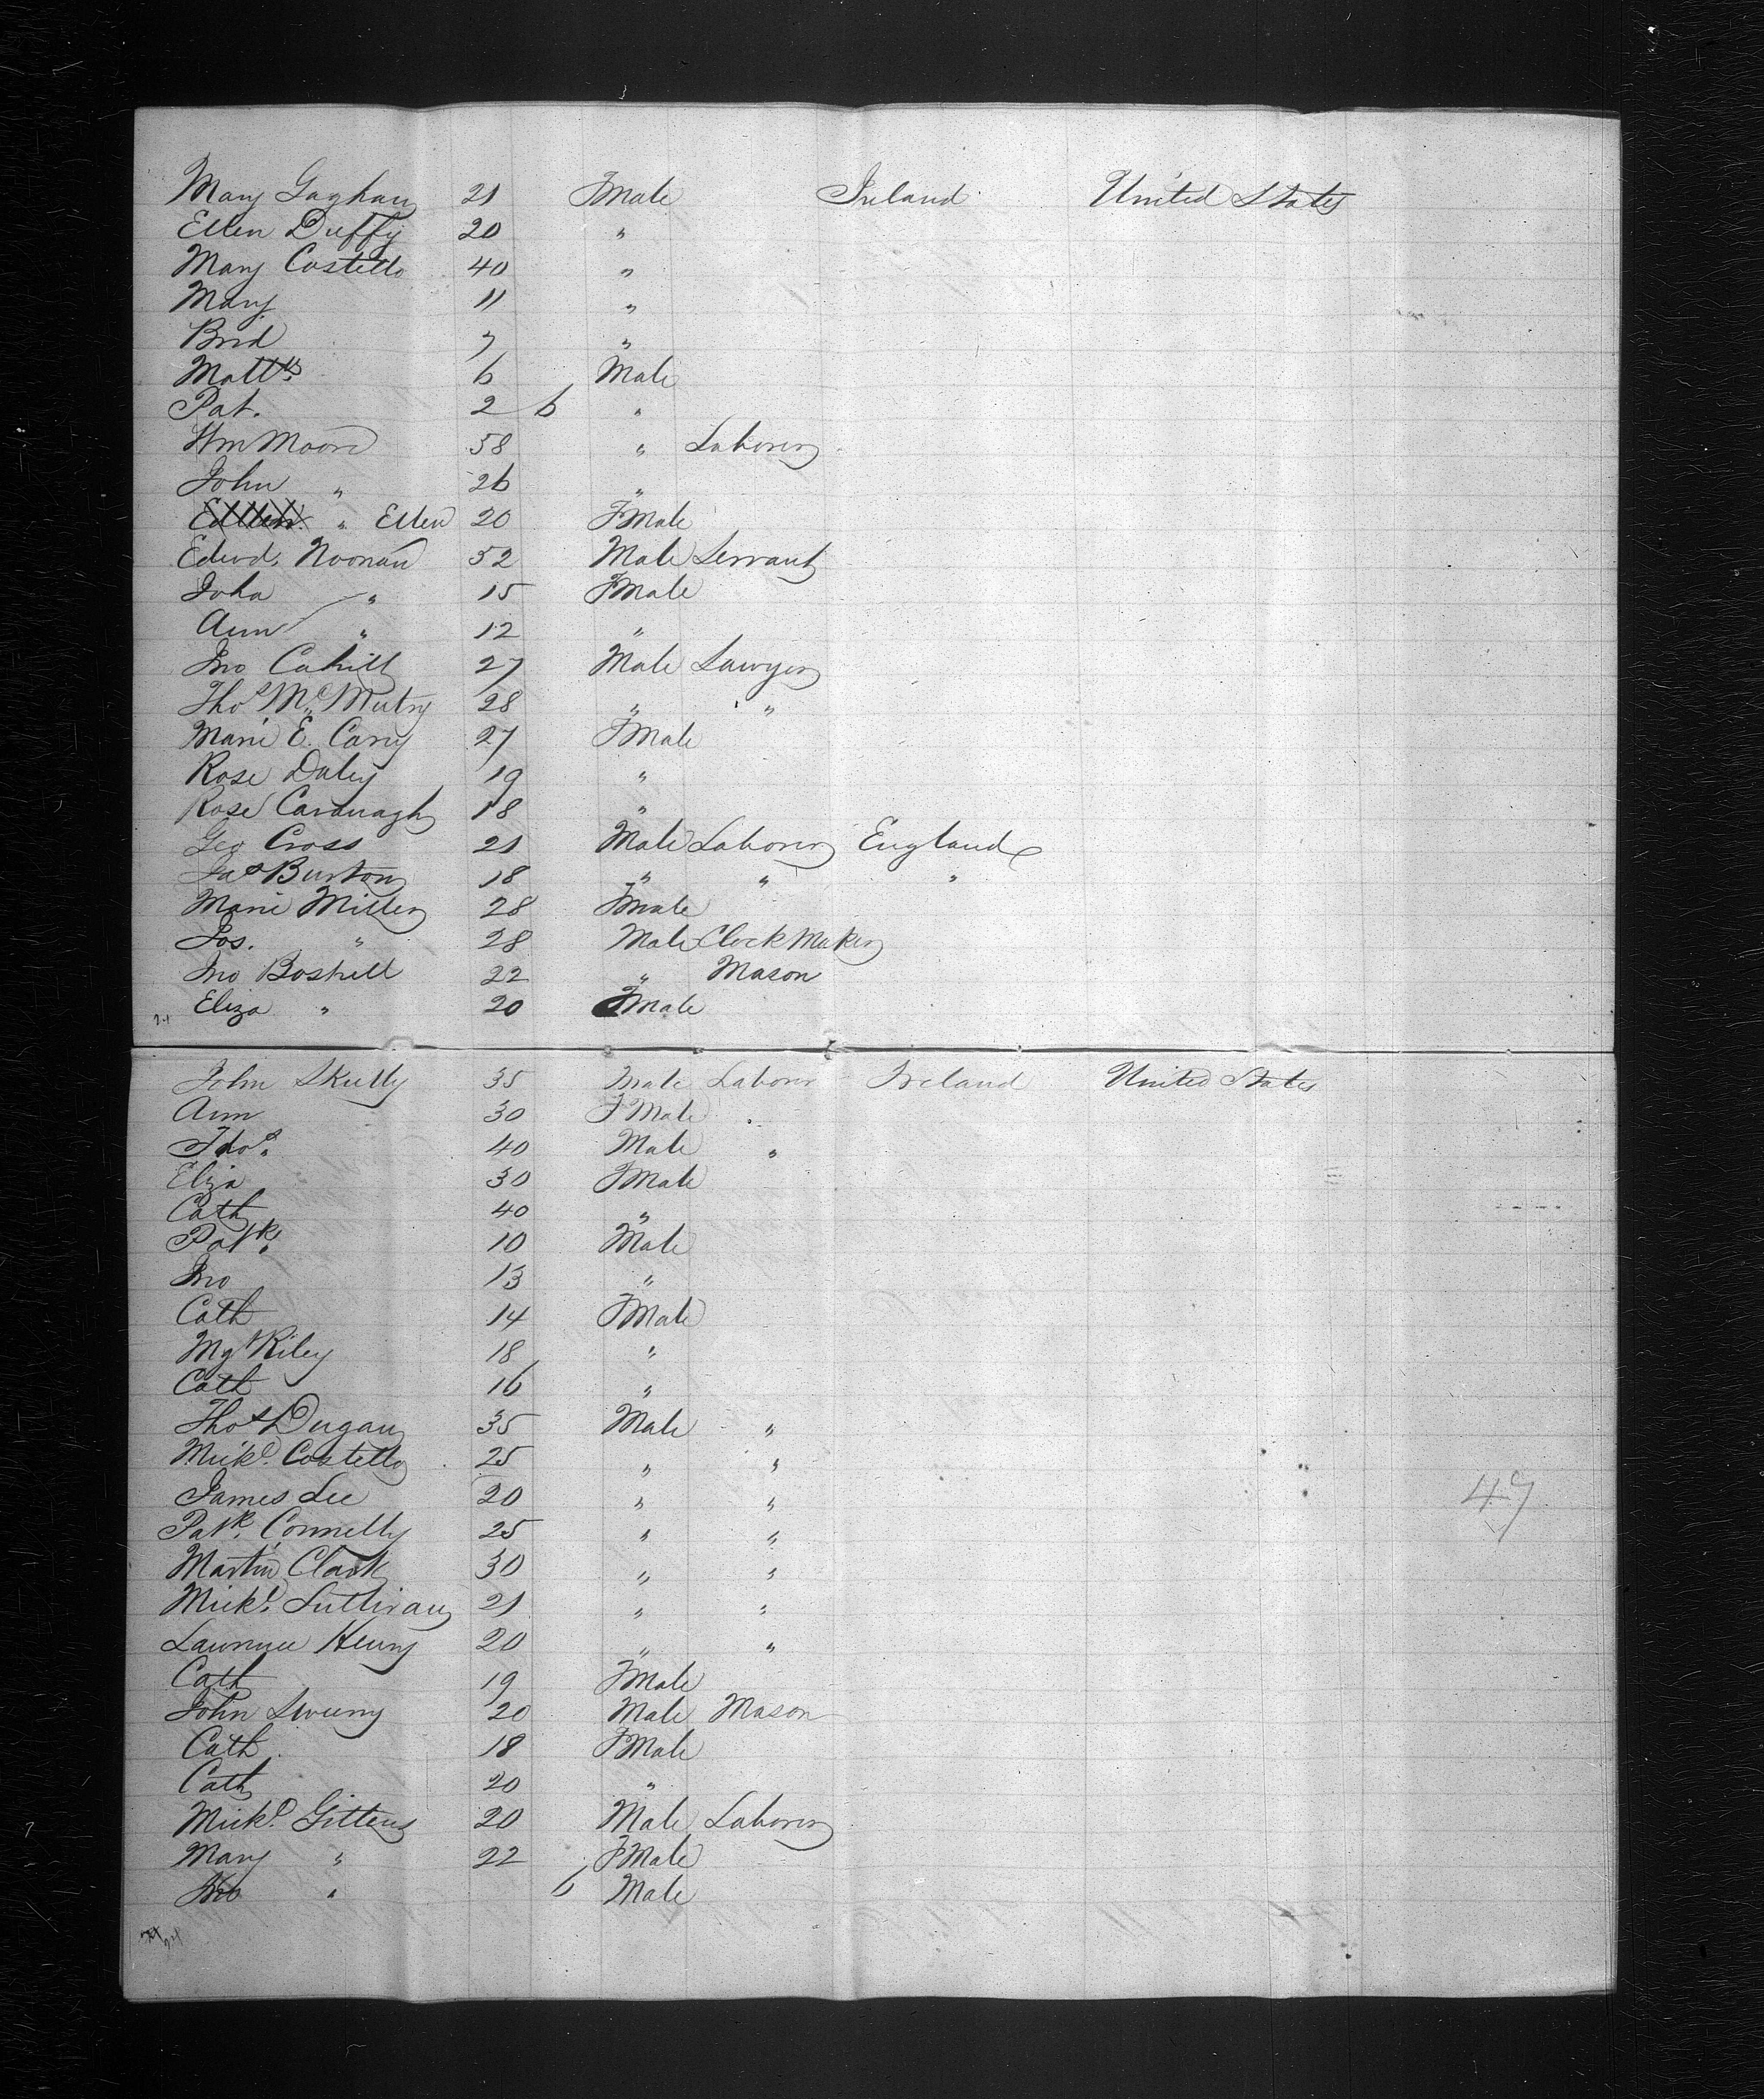 Mary Gaghan 21 FMale Ireland United States
Ellen Duffy 20 "
Mary Costello 40 "
Mary 11 "
Brid 7 "
Matths 6 Male
Pat. 2 6 "
Wm Moore 58 " Laborer
John " 26 "
" Ellen 20 FMale
Edwd. Noonan 52 Male Servant
Joha " 15 FMale
Ann " 12 "
Jno Cahill 27 Male Lawyer
Thos 28 " "
Marie E. Cary 27 FMale
Rose Daley 19 "
Rose Cavanagh 18 "
Geo Cross 21 Male Laborer England
Jas Burton 18 " " "
Marie Miller 28 Fmale
Jos. " 28 Male Clock Maker
Jno Boshell 22 " Mason
Eliza " 20 FMale
24
John Skully 35 Male Laborer Ireland United States
Ann 30 FMale "
Thos. 40 Male "
Eliza 30 FMale
Cath 40 "
Patk. 10 Male
Jno 13 "
Cath 14 FMale
Mgt Riley 18 "
Cath 16 "
Thos Dugan 35 Male "
Mickl. Costello 25 " "
James Lee 20 " "
Patk. Connelly 25 " "
Martin Clark 30 " "
Mickl. Sullivan 21 " "
Lawrence Henry 20 " "
Cath 19 FMale
John Sweeny 20 Male Mason
Cath 18 FMale
Cath 20 "
Mickl. Gittens 20 Male Laborer
Mary " 22 FMale
Jno " 6 Male
47
24